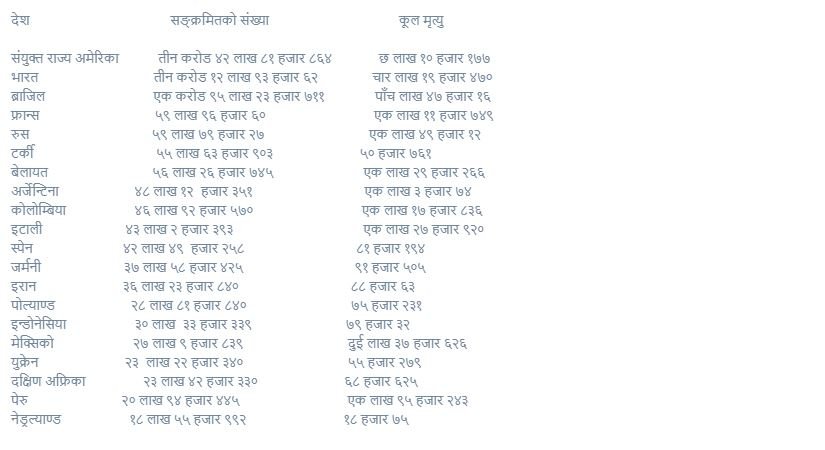 देश सङ्क्रमितको संख्या कूल मृत्यु
संयुक्त राज्य अमेरिका तीन करोड ४२ लाख ८१ हजार ८६४ छ लाख १० हजार १७७
भारत तीन करोड १२ लाख ९३ हजार ६२ चार लाख १९ हजार ४७०
ब्राजिल एक करोड ९५ लाख २३ हजार ७११ पाँच लाख ४७ हजार १६
फ्रान्स ५९ लाख ९६ हजार ६० एक लाख ११ हजार ७४९
रुस ५९ लाख ७९ हजार २७ एक लाख ४९ हजार १२
टर्की ५५ लाख ६३ हजार ९०३ ५० हजार ७६१
बेलायत ५६ लाख २६ हजार ७४५ एक लाख २९ हजार २६६
अर्जेन्टिना ४८ लाख १२ हजार ३५१ एक लाख ३ हजार ७४
कोलोम्बिया ४६ लाख ९२ हजार ५७० एक लाख १७ हजार ८३६
इटाली ४३ लाख २ हजार ३९३ एक लाख २७ हजार ९२०
स्पेन ४२ लाख ४९ हजार २५८ ८१ हजार १९४
जर्मनी ३७ लाख ५८ हजार ४२५ ९१ हजार ५०५
इरान ३६ लाख २३ हजार ८४० ८८ हजार ६३
पोल्याण्ड २८ लाख ८१ हजार ८४० ७५ हजार २३१
इन्डोनेसिया ३० लाख ३३ हजार ३३९ ७९ हजार ३२
मेक्सिको २७ लाख ९ हजार ८३९ दुई लाख ३७ हजार ६२६
युक्रेन २३ लाख २२ हजार ३४० ५५ हजार २७९
दक्षिण अफ्रिका २३ लाख ४२ हजार ३३० ६८ हजार ६२५
पेरु २० लाख ९४ हजार ४४५ एक लाख ९५ हजार २४३
नेड्रल्याण्ड १८ लाख ५५ हजार ९९२ १८ हजार ७५